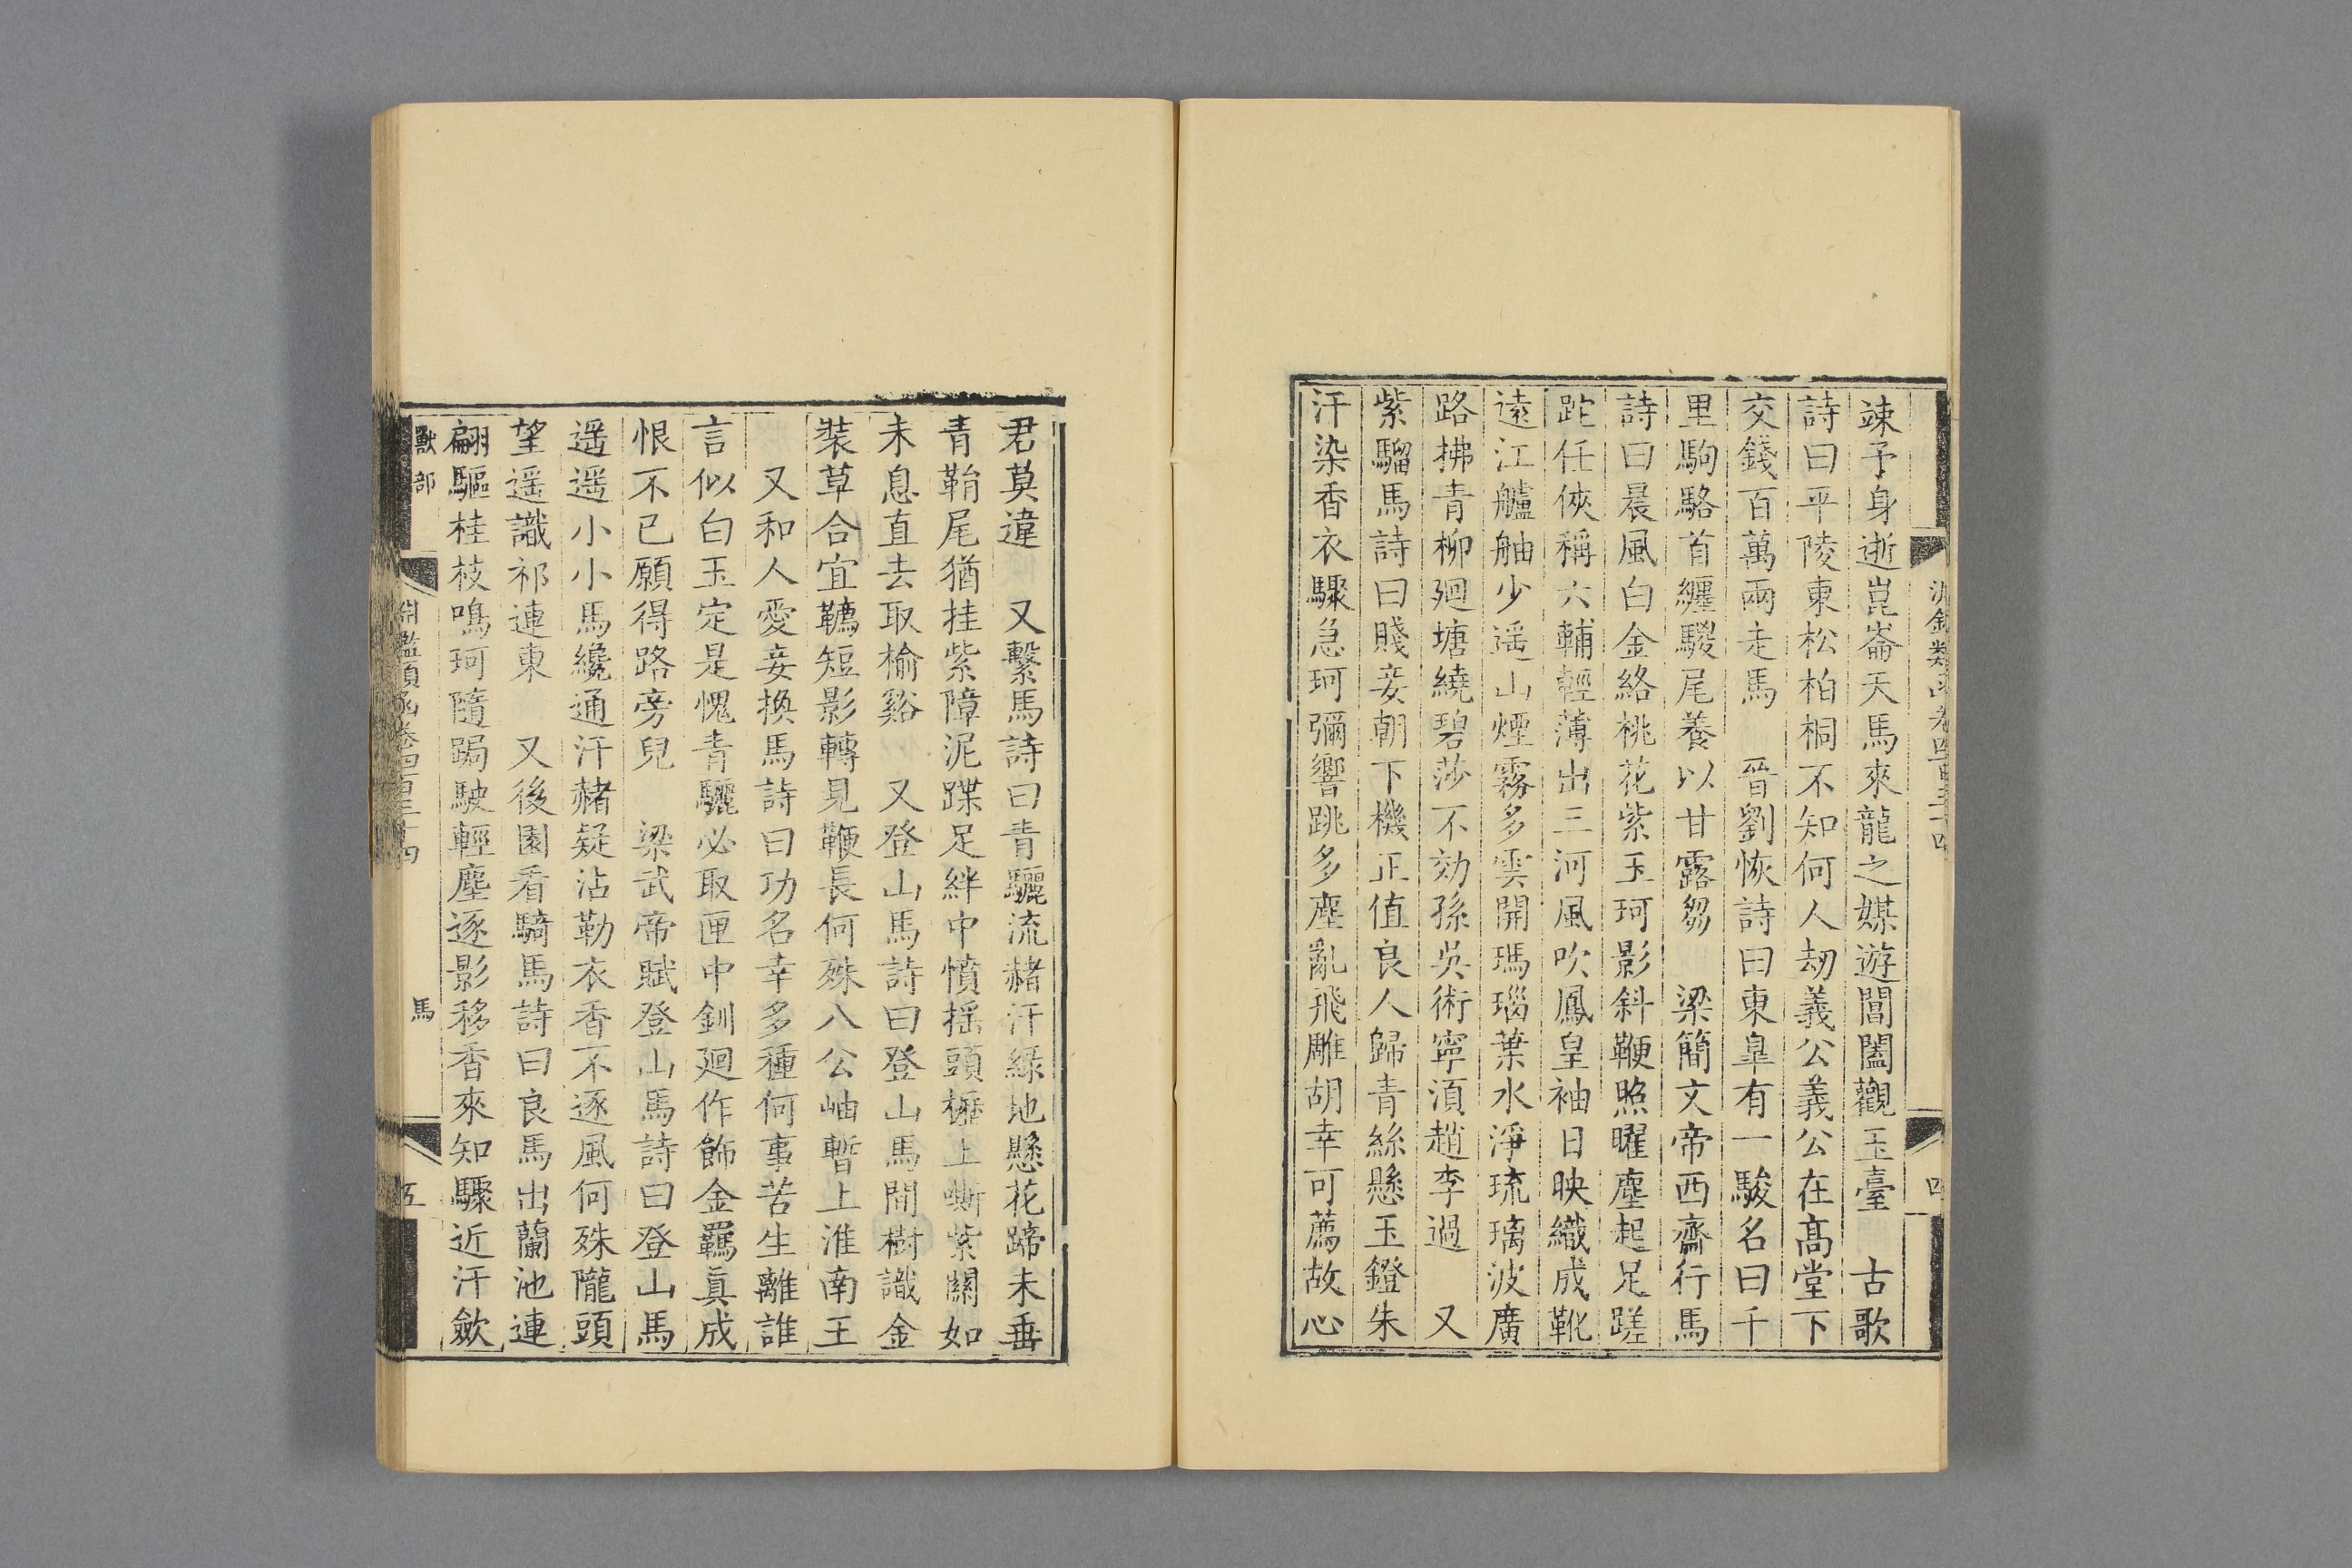 竦予身逝崑崙天馬來龍之媒遊閶闔觀玉臺　古歌
詩曰平陵東松柏桐不知何人刼義公義公在髙堂下
交錢百萬兩走馬　晉劉恢詩曰東臯有一駿名曰千
里駒駱首纒騣尾養以甘露芻　梁簡文帝西齋行馬
詩曰晨風白金絡桃花紫玉珂影斜鞭照曜塵起足蹉
跎任俠稱六輔輕薄出三河風吹鳳皇袖日映織成靴
逺江艫舳少遥山煙霧多雲開瑪瑙葉水淨琉璃波廣
路拂青柳廻塘繞碧莎不効孫吳術寧湏趙李過　又
紫騮馬詩曰賤妾朝下機正值良人歸青絲懸玉鐙朱
汗染香衣驟急珂彌響跳多塵亂飛雕胡幸可薦故心
君莫違　又繫馬詩曰青驪流赭汗緑地懸花蹄未垂
青鞘尾猶挂紫障泥蹀足絆中憤揺頭櫪上嘶紫關如
未息直去取榆谿　又登山馬詩曰登山馬間樹識金
裝草合宜韉短影轉見鞭長何殊八公岫暫上淮南王
又和人愛妾換馬詩曰功名幸多種何事苦生離誰
言似白玉定是愧青驪必取匣中釧廻作飾金羈真成
恨不已願得路旁兒　梁武帝賦登山馬詩曰登山馬
遥遥小小馬纔通汗赭疑沾勒衣香不逐風何殊隴頭
望遥識祁連東　又後園看騎馬詩曰良馬出蘭池連
翩驅桂枝鳴珂隨跼駛輕塵逐影移香來知驟近汗歛
獸部
淵鑑類函卷四百三十四
馬
五